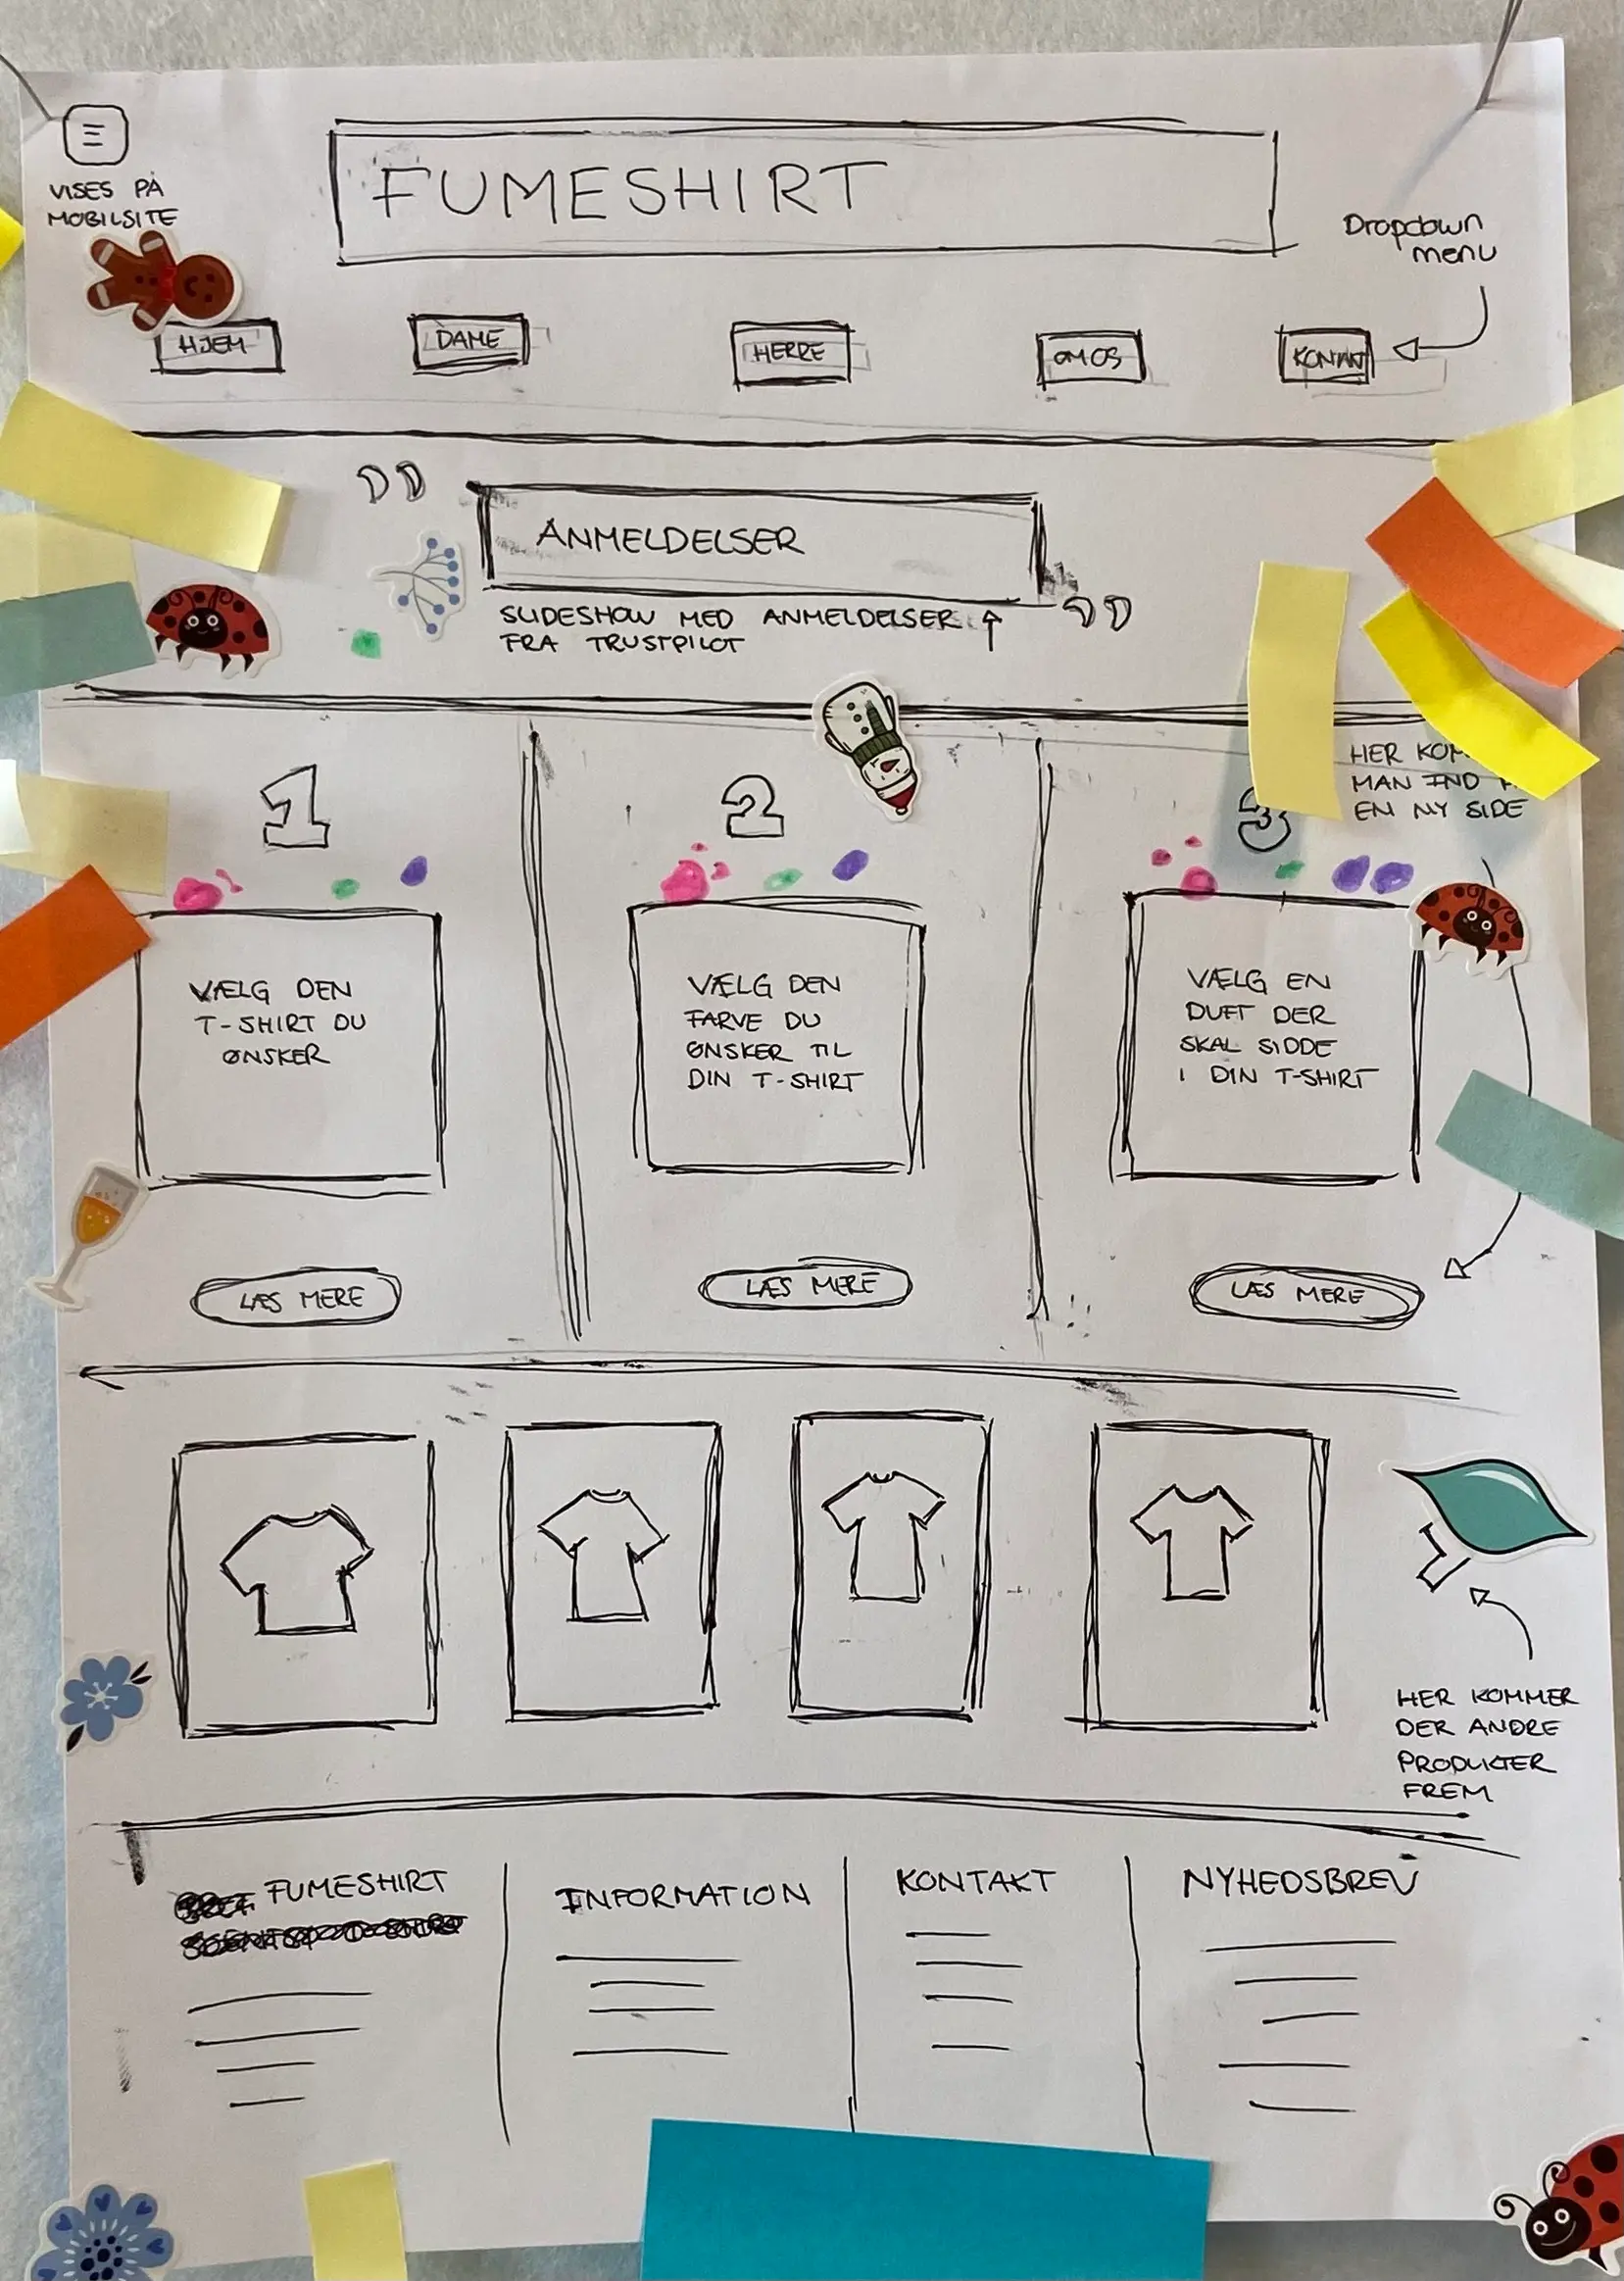 VISES PÅ
MOBILSITE
FUMESHIRT
Dropdown
menu
HJEM
DAME
HERRE
OM OS
ANMELDELSER
SLIDESHOW MED ANMELDELSER
FRA TRUSTPILOT
1
2
3
HER
MAN IND
EN NY SIDE
VÆLG DEN
T-SHIRT DU
ØNSKER
VÆLG DEN
FARVE DU
ØNSKER TIL
DIN T-SHIRT
VÆLG EN
DUFT DER
SKAL SIDDE
I DIN T-SHIRT
LÆS MERE
LÆS MERE
LÆS MERE
HER KOMMER
DER ANDRE
PRODUKTER
FREM
FUMESHIRT
INFORMATION
KONTAKT
NYHEDSBREV